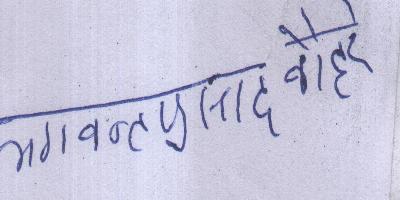 भगवन्तप्रसाद चौहरे